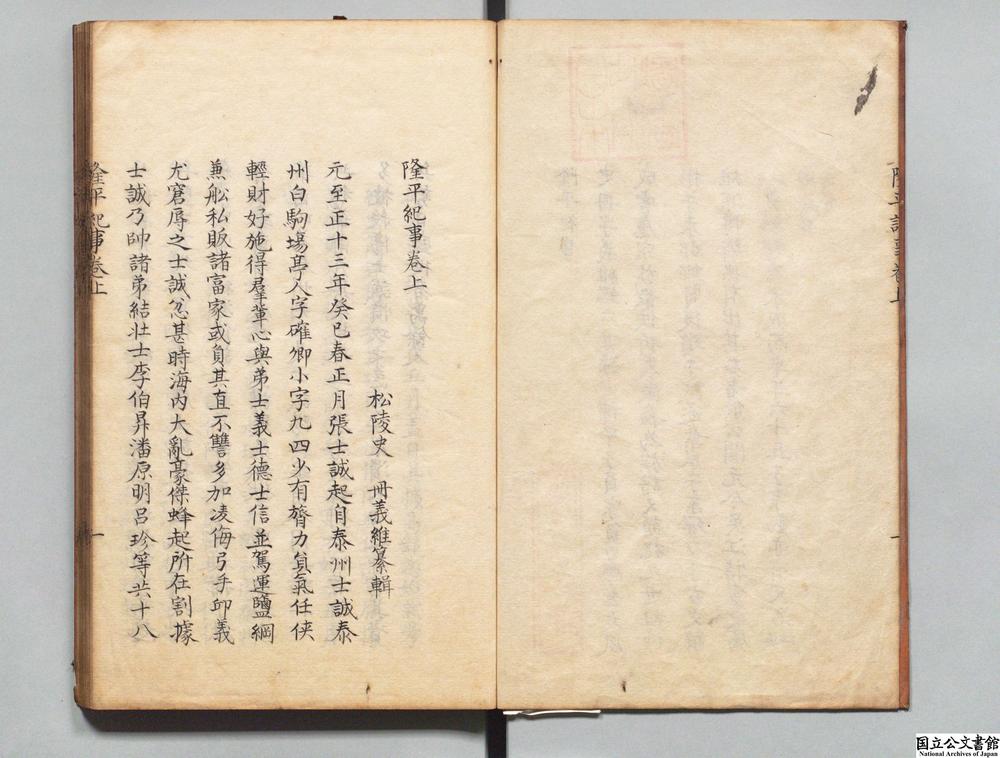 隆平紀事卷上
松陵史 冊義維纂輯
元至正十三年癸巳春正月張士誠起自泰州士誠泰
州白駒塲亭人字確卿小字九四少有膂力負氣任俠
輕財好施得羣輩心與弟士義士德士信並駕運鹽綱
兼舩私販諸富家或負其直不讐多加凌侮弓手邱義
尤窘辱之士誠忿甚時海内大亂豪傑蜂起所在割據
士誠乃帥諸弟結壮士李伯昇潘原明呂珍等共十八
隆平紀事卷上
一
国立公文書館
National Archives of Japan